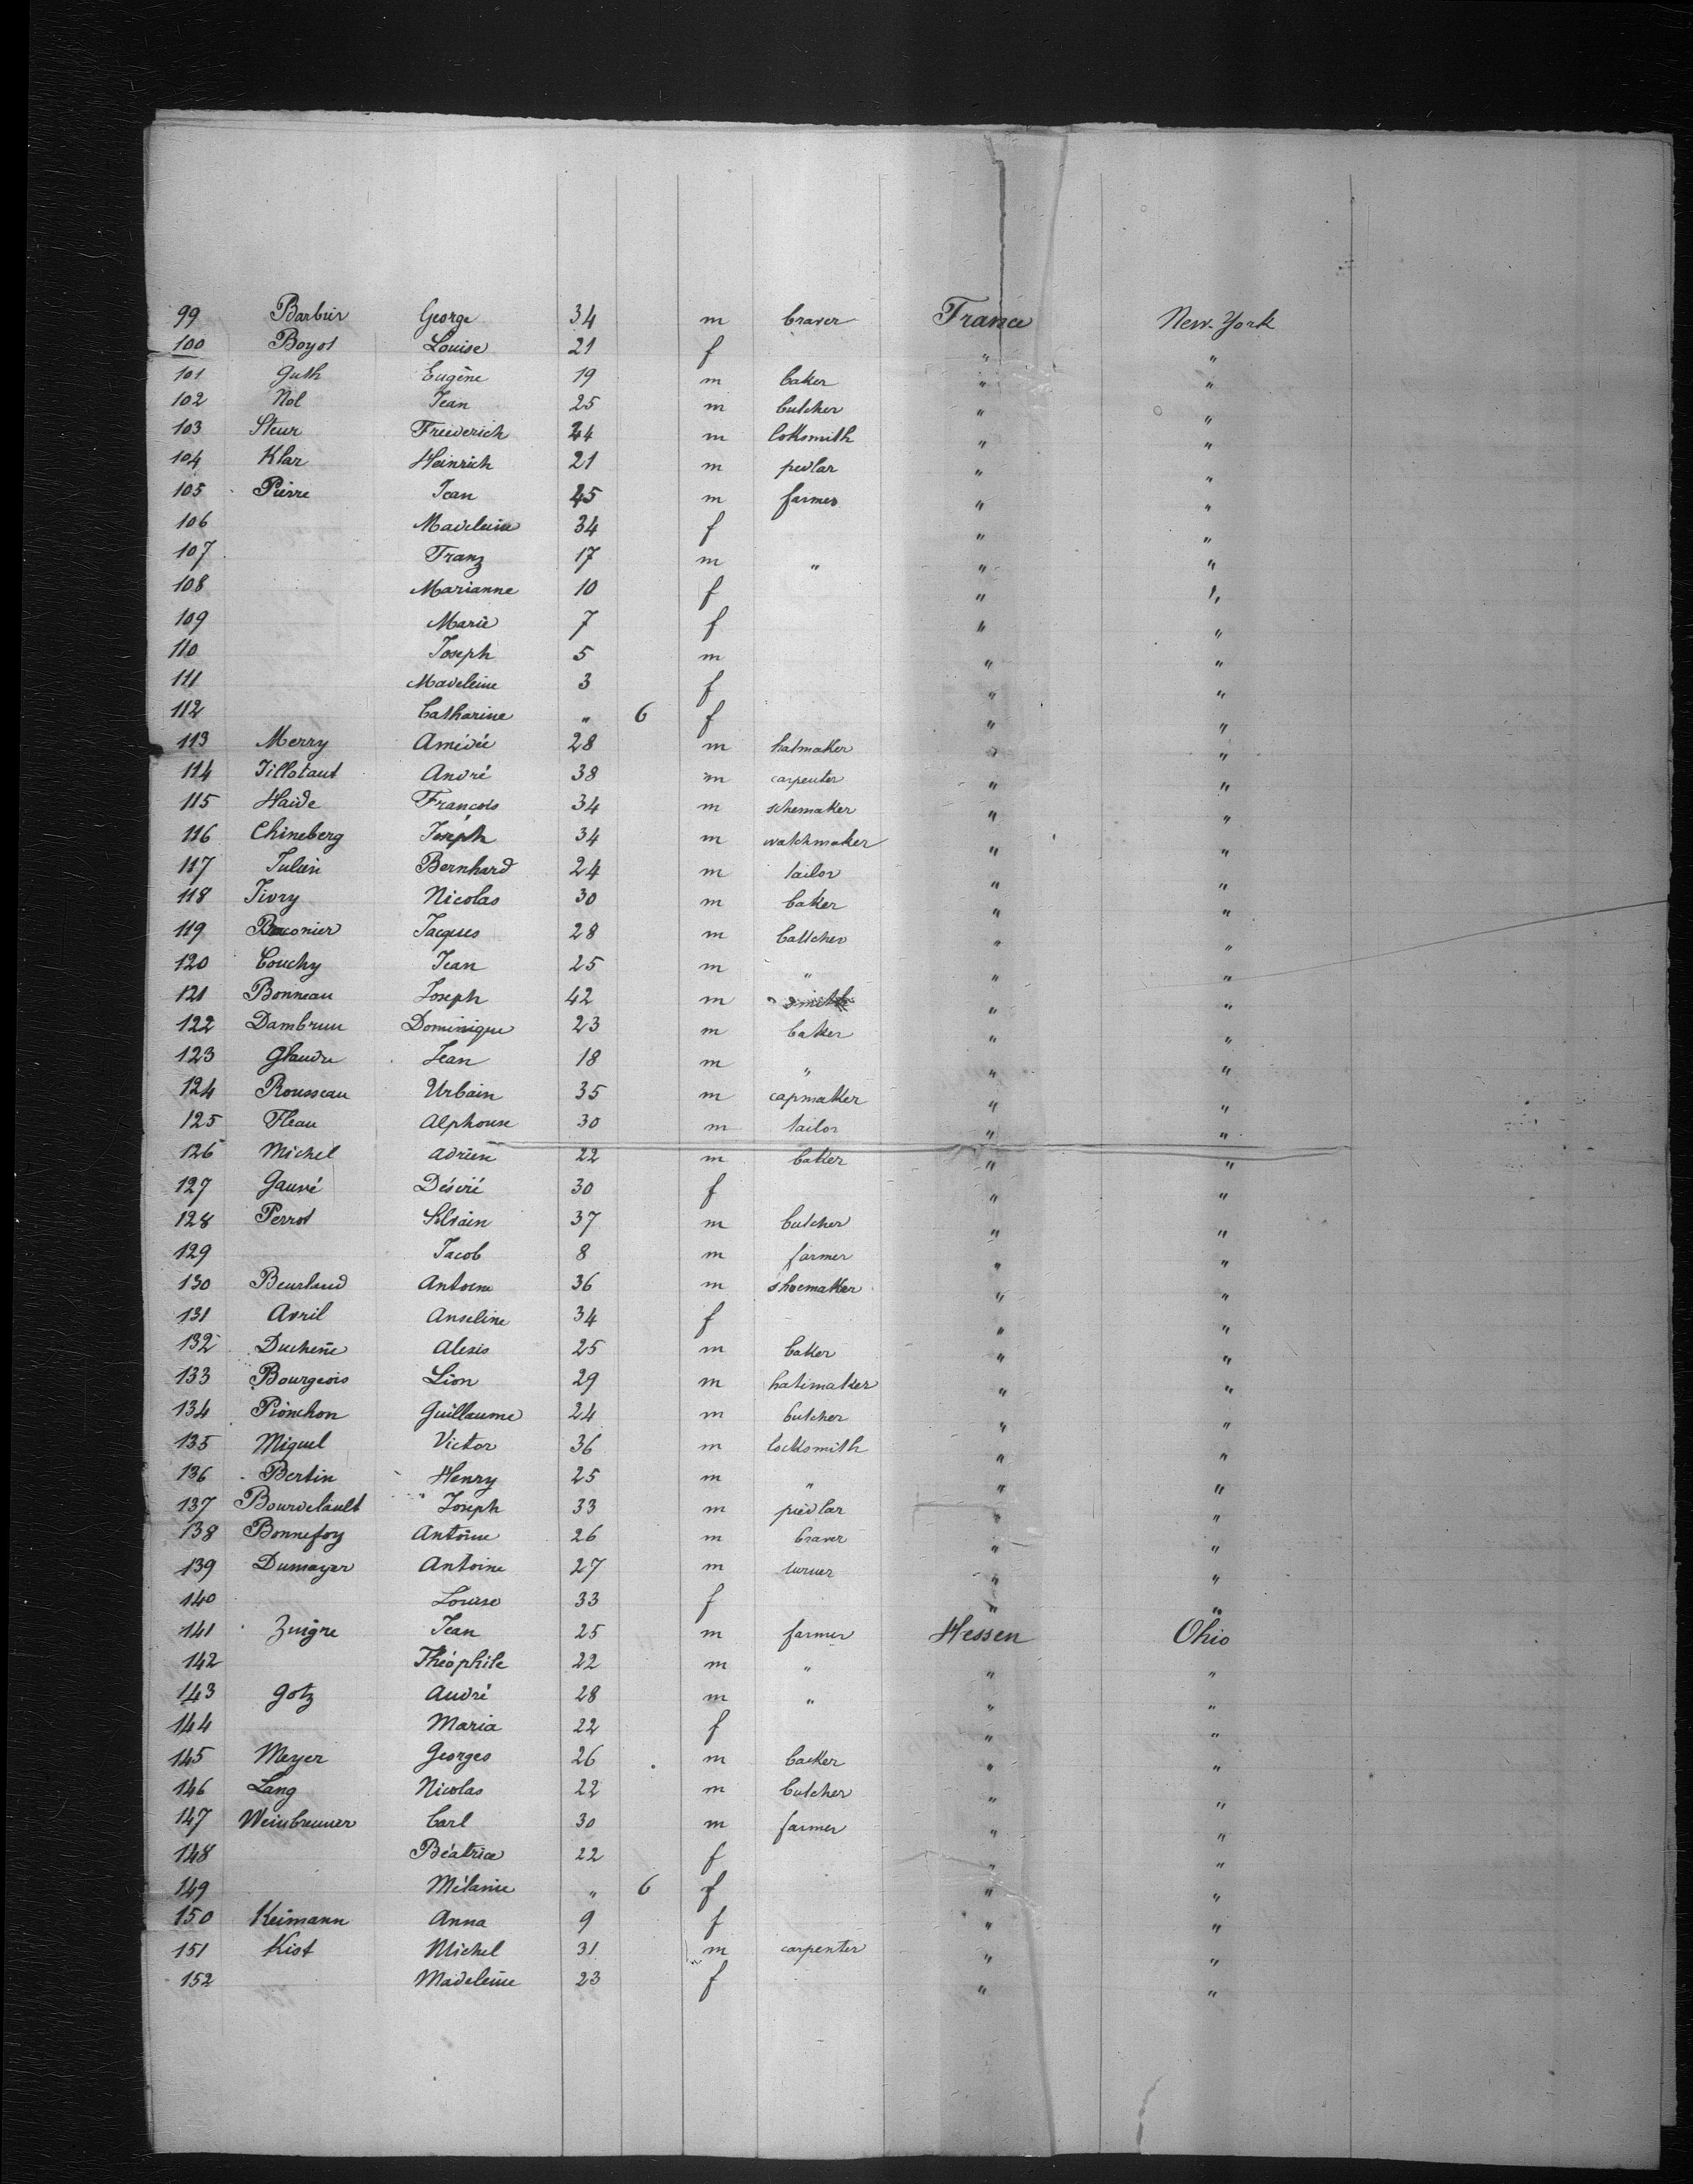 99 Barbier George 34 m braver France New-York
100 Boyot Louise 21 f " "
101 Guth Eugène 19 m baker " "
102 Nol Jean 25 m butcher " "
103 Steur Friederich 24 m loksmith " "
104 Klar Heinrich 21 m pedlar " "
105 Pierre Jean 45 m farmer " "
106 Madeleine 34 f " "
107 Franz 17 m " " "
108 Marianne 10 f " "
109 Marie 7 f " "
110 Joseph 5 m " "
111 Madeleine 3 f " "
112 Catharine " 6 f " "
113 Merry Amédée 28 m hatmaker " "
114 Tillotaut André 38 m carpenter " "
115 Haide François 34 m schemaker " "
116 Chineberg Joseph 34 m watchmaker " "
117 Julien Bernhard 24 m tailor " "
118 Tivry Nicolas 30 m baker " "
119 Braconier Jacques 28 m buttcher " "
120 Couchy Jean 25 m " " "
121 Bonneau Joseph 42 m smith " "
122 Dambrun Dominique 23 m baker " "
123 Glaude Jean 18 m " " "
124 Rousseau Urbain 35 m capmaker " "
125 Fleau Alphonse 30 m tailor " "
126 Michel Adrien 22 m baker " "
127 Gauné Désiré 30 f " "
128 Perrot Silvain 37 m butcher " "
129 Jacob 8 m farmer " "
130 Beurlaud Antoine 36 m shoemaker " "
131 Avril Anseline 34 f " "
132 Duchene Alexis 25 m baker " "
133 Bourgeois Léon 29 m hatmaker " "
134 Pionchon Guillaume 24 m butcher " "
135 Miguel Victor 36 m locksmith " "
136 Bertin Henry 25 m " " "
137 Bourdelault Joseph 33 m piedlar " "
138 Bonnefoy Antoine 26 m braver " "
139 Dumayer Antoine 27 m turner " "
140 Louise 33 f " "
141 Zuigre Jean 25 m farmer Hessen Ohio
142 Théophile 22 m " " "
143 Gotz André 28 m " " "
144 Maria 22 f " "
145 Meyer Georges 26 m backer " "
146 Lang Nicolas 22 m butcher " "
147 Weinbrenner Carl 30 m farmer " "
148 Béatrice 22 f " "
149 Mélanie " 6 f " "
150 Keimann Anna 9 f " "
151 Kist Michel 31 m carpenter " "
152 Madeleine 23 f " "